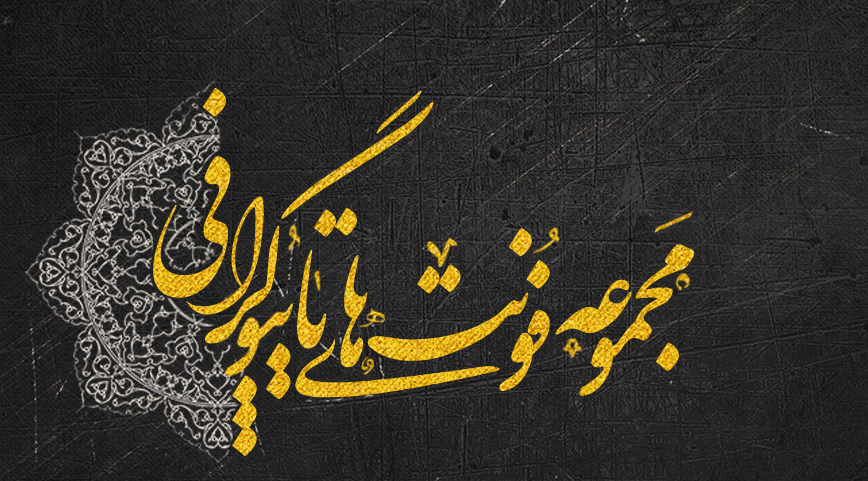 مجموعه فونت های تایپوگرافی